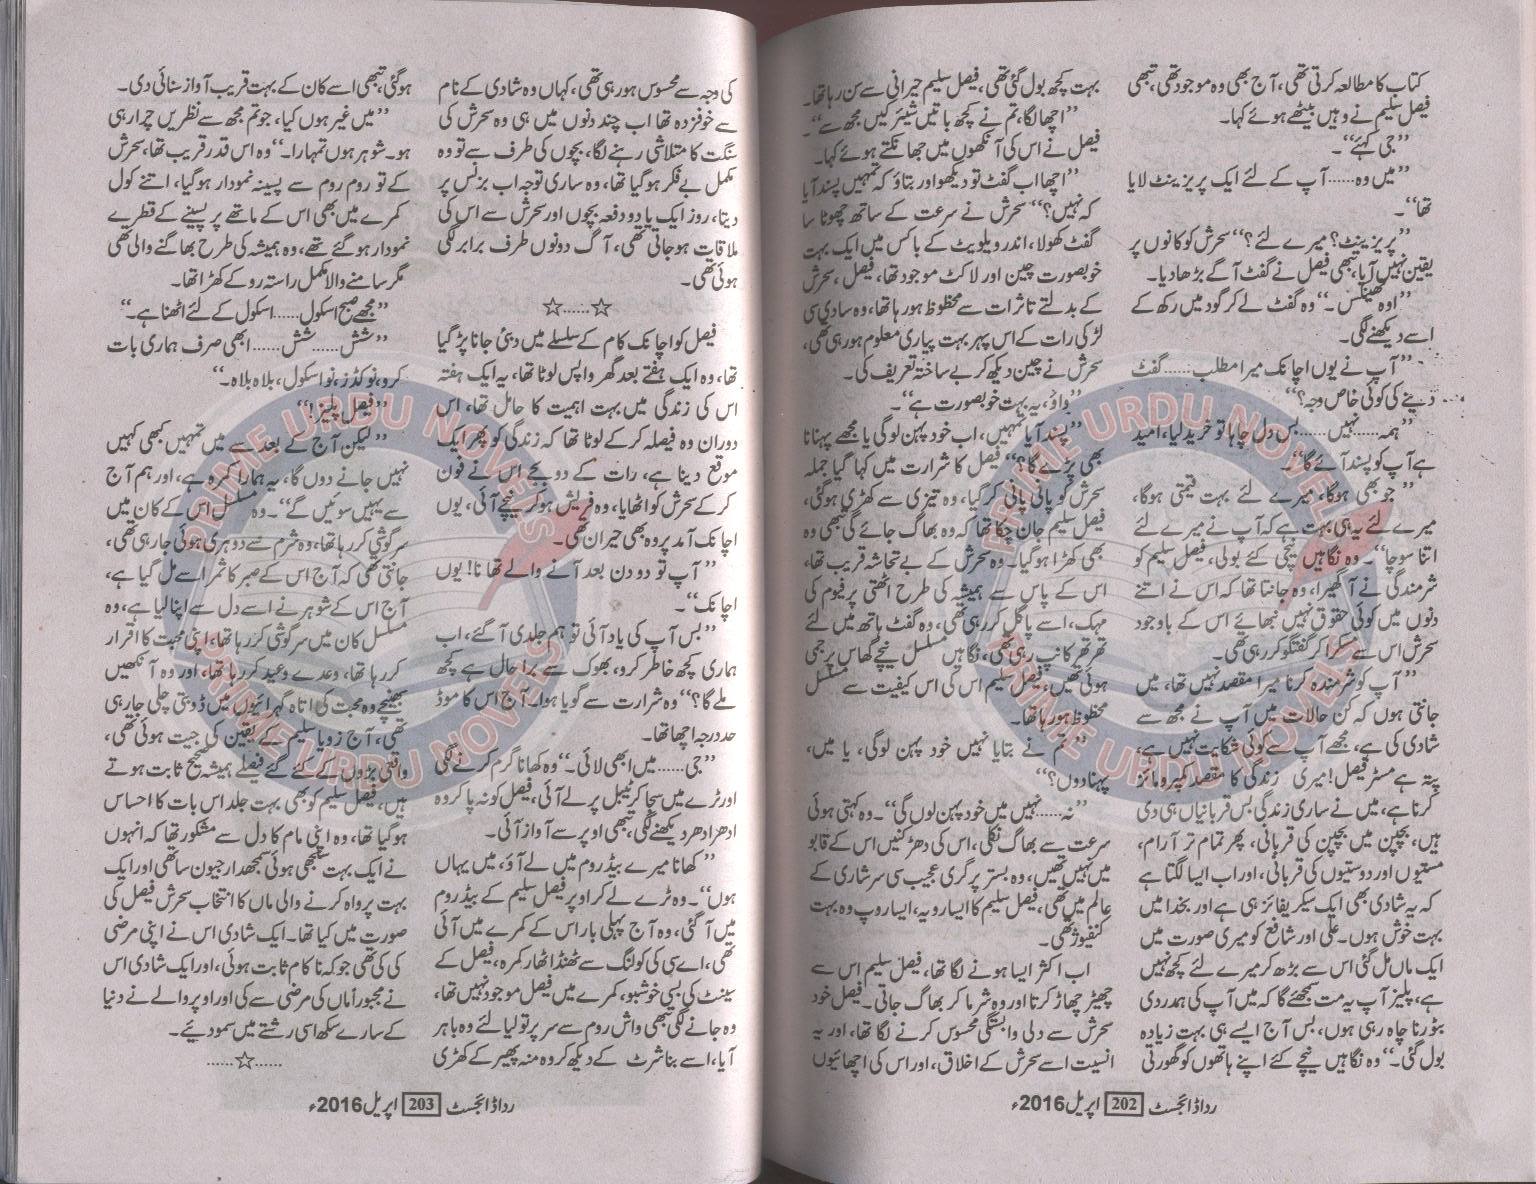 کتاب کا مطالعہ کرتی تھی، آج بھی وہ موجود تھی، تبھی
فیصل سلیم نے وہیں بیٹھے ہوئے کہا۔
”جی کہئے“۔
”میں وہ...... آپ کے لئے ایک پریزینٹ لایا
تھا“۔
”پریزینٹ؟ میرے لئے؟“ سحرش کو کانوں پر
یقین نہیں آیا، تبھی فیصل نے گفٹ آگے بڑھا دیا۔
”اوہ تھینکس۔“ وہ گفٹ لے کر گود میں رکھ کے
اسے دیکھنے لگی۔
”آپ نے یوں اچانک میرا مطلب...... گفٹ
دینے کی کوئی خاص وجہ؟“
”ہمہ...... نہیں...... بس دل چاہا تو خرید لیا، امید
ہے آپ کو پسند آئے گا“۔
”جو بھی ہوگا، میرے لئے بہت قیمتی ہوگا،
میرے لئے یہی بہت ہے کہ آپ نے میرے لئے
اتنا سوچا“۔ وہ نگاہیں نیچی کئے بولی، فیصل سلیم کو
شرمندگی نے آ گھیرا، وہ جانتا تھا کہ اس نے اتنے
دنوں میں کوئی حقوق نہیں نبھائے اس کے باوجود
سحرش اس سے مسکرا کر گفتگو کر رہی تھی۔
”آپ کو شرمندہ کرنا میرا مقصد نہیں تھا، میں
جانتی ہوں کہ کن حالات میں آپ نے مجھ سے
شادی کی ہے، مجھے آپ سے کوئی شکایت نہیں ہے،
پتہ ہے مسٹر فیصل! میری زندگی کا مقصد کمپرومائز
کرنا ہے، میں نے ساری زندگی بس قربانیاں ہی دی
ہیں، بچپن میں بچپن کی قربانی، پھر تمام تر آرام،
مستیوں اور دوستیوں کی قربانی، اور اب ایسا لگتا ہے
کہ یہ شادی بھی ایک سیکریفائز ہی ہے اور بخدا میں
بہت خوش ہوں۔ علی اور شافع کو میری صورت میں
ایک ماں مل گئی اس سے بڑھ کر میرے لئے کچھ نہیں
ہے، پلیز آپ یہ مت سمجھئے گا کہ میں آپ کی ہمدردی
بٹورنا چاہ رہی ہوں، بس آج ایسے ہی بہت زیادہ
بول گئی۔“ وہ نگاہیں نیچے کئے اپنے ہاتھوں کو گھورتی
بہت کچھ بول گئی تھی، فیصل سلیم حیرانی سے سن رہا تھا۔
”اچھا لگا، تم نے کچھ باتیں شیئر کیں مجھ سے“۔
فیصل نے اس کی آنکھوں میں جھانکتے ہوئے کہا۔
”اچھا اب گفٹ تو دیکھو اور بتاؤ کہ تمہیں پسند آیا
کہ نہیں؟“ سحرش نے سرعت کے ساتھ چھوٹا سا
گفٹ کھولا، اندر ویلویٹ کے باکس میں ایک بہت
خوبصورت چین اور لاکٹ موجود تھا، فیصل، سحرش
کے بدلتے تاثرات سے محظوظ ہو رہا تھا، وہ سادی سی
لڑکی رات کے اس پہر بہت پیاری معلوم ہو رہی تھی،
سحرش نے چین دیکھ کر بے ساختہ تعریف کی۔
”واؤ، یہ بہت خوبصورت ہے“۔
”پسند آیا تمہیں، اب خود پہن لوگی یا مجھے پہنانا
بھی پڑے گا؟“ فیصل کا شرارت میں کہا گیا جملہ
سحرش کو پانی پانی کر گیا، وہ تیزی سے کھڑی ہوگئی،
فیصل سلیم جان چکا تھا کہ وہ بھاگ جائے گی تبھی وہ
بھی کھڑا ہوگیا۔ وہ سحرش کے بے تحاشہ قریب تھا،
اس کے پاس سے ہمیشہ کی طرح اٹھتی پرفیوم کی
مہک، اسے پاگل کر رہی تھی، وہ گفٹ ہاتھ میں لئے
تھر تھر کانپ رہی تھی، نگاہیں مسلسل نیچے گھاس پر جمی
ہوئی تھیں، فیصل سلیم اس کی اس کیفیت سے مسلسل
محظوظ ہو رہا تھا۔
”تم نے بتایا نہیں خود پہن لوگی، یا میں،
پہنا دوں؟“
”نہ...... نہیں میں خود پہن لوں گی“۔ وہ کہتی ہوئی
سرعت سے بھاگ نکلی، اس کی دھڑکنیں اس کے قابو
میں نہیں تھیں، وہ بستر پر گری عجیب سی سرشاری کے
عالم میں تھی، فیصل سلیم کا ایسا رویہ، ایسا روپ وہ بہت
کنفیوز تھی۔
اب اکثر ایسا ہونے لگا تھا، فیصل سلیم اس سے
چھیڑ چھاڑ کرتا اور وہ شرما کر بھاگ جاتی۔ فیصل خود
سحرش سے دلی وابستگی محسوس کرنے لگا تھا، اور یہ
انسیت اسے سحرش کے اخلاق، اور اس کی اچھائیوں
ردا ڈائجسٹ 202 اپریل 2016ء
کی وجہ سے محسوس ہو رہی تھی، کہاں وہ شادی کے نام
سے خوفزدہ تھا اب چند دنوں میں ہی وہ سحرش کی
سنگت کا متلاشی رہنے لگا، بچوں کی طرف سے تو وہ
مکمل بے فکر ہوگیا تھا، وہ ساری توجہ اب بزنس پر
دیتا، روز ایک یا دو دفعہ بچوں اور سحرش سے اس کی
ملاقات ہو جاتی تھی، آگ دونوں طرف برابر لگی
ہوئی تھی۔
☆......☆
فیصل کو اچانک کام کے سلسلے میں دبئی جانا پڑ گیا
تھا، وہ ایک ہفتے بعد گھر واپس لوٹا تھا، یہ ایک ہفتہ
اس کی زندگی میں بہت اہمیت کا حامل تھا، اس
دوران وہ فیصلہ کر کے لوٹا تھا کہ زندگی کو پھر ایک
موقع دینا ہے، رات کے دو بجے اس نے فون
کر کے سحرش کو اٹھایا، وہ فریش ہو کر نیچے آئی، یوں
اچانک آمد پر وہ بھی حیران تھی۔
”آپ تو دو دن بعد آنے والے تھا نا! یوں
اچانک“۔
”بس آپ کی یاد آئی تو ہم جلدی آ گئے، اب
ہماری کچھ خاطر کرو، بھوک سے برا حال ہے کچھ
ملے گا؟“ وہ شرارت سے گویا ہوا۔ آج اس کا موڈ
حد درجہ اچھا تھا۔
”جی...... میں ابھی لائی۔“ وہ کھانا گرم کرنے لگی
اور ٹرے میں سجا کر ٹیبل پر لے آئی، فیصل کو نہ پا کر وہ
ادھر ادھر دیکھنے لگی، تبھی اوپر سے آواز آئی۔
”کھانا میرے بیڈ روم میں لے آؤ، میں یہاں
ہوں“۔ وہ ٹرے لے کر اوپر فیصل سلیم کے بیڈ روم
میں آ گئی، وہ آج پہلی بار اس کے کمرے میں آئی
تھی، اے سی کی کولنگ سے ٹھنڈا ٹھار کمرہ، فیصل کے
سینٹ کی بسی خوشبو، کمرے میں فیصل موجود نہیں تھا،
وہ جانے لگی تبھی واش روم سے سر پر تولیا لئے وہ باہر
آیا، اسے بنا شرٹ کے دیکھ کر وہ منہ پھیر کے کھڑی
ہوگئی، تبھی اسے کان کے بہت قریب آواز سنائی دی۔
”میں غیر ہوں کیا، جو تم مجھ سے نظریں چرا رہی
ہو۔ شوہر ہوں تمہارا۔“ وہ اس قدر قریب تھا، سحرش
کے تو روم روم سے پسینہ نمودار ہوگیا، اتنے کول
کمرے میں بھی اس کے ماتھے پر پسینے کے قطرے
نمودار ہو گئے تھے، وہ ہمیشہ کی طرح بھاگنے والی تھی
مگر سامنے والا مکمل راستہ روکے کھڑا تھا۔
”مجھے صبح اسکول...... اسکول کے لئے اٹھنا ہے۔“
”شش...... شش...... ابھی صرف ہماری بات
کرو، نو کڈز، نو اسکول، بلاہ بلاہ۔“
”فیصل پلیز!“
”لیکن آج کے بعد سے میں تمہیں کبھی کہیں
نہیں جانے دوں گا، یہ ہمارا کمرہ ہے، اور ہم آج
سے یہیں سوئیں گے“۔ وہ مسلسل اس کے کان میں
سرگوشی کر رہا تھا، وہ شرم سے دوہری ہوئی جا رہی تھی،
جانتی تھی کہ آج اس کے صبر کا ثمر اسے مل گیا ہے،
آج اس کے شوہر نے اسے دل سے اپنا لیا ہے، وہ
مسلسل کان میں سرگوشی کر رہا تھا، اپنی محبت کا اقرار
کر رہا تھا، وعدے وعید کر رہا تھا، اور وہ آنکھیں
بھینچے وہ محبت کی اتاہ گہرائیوں میں ڈوبتی چلی جا رہی
تھی، آج زویا سلیم کے یقین کی جیت ہوئی تھی،
واقعی بڑوں کے کئے گئے فیصلے ہمیشہ صحیح ثابت ہوتے
ہیں، فیصل سلیم کو بھی بہت جلد اس بات کا احساس
ہوگیا تھا، وہ اپنی مام کا دل سے مشکور تھا کہ انہوں
نے ایک بہت سلجھی ہوئی سمجھدار جیون ساتھی اور ایک
بہت پرواہ کرنے والی ماں کا انتخاب سحرش فیصل کی
صورت میں کیا تھا۔ ایک شادی اس نے اپنی مرضی
کی کی تھی جو کہ ناکام ثابت ہوئی، اور ایک شادی اس
نے مجبوراً ماں کی مرضی سے کی اور اوپر والے نے دنیا
کے سارے سکھ اسی رشتے میں سمو دیئے۔
......☆......
ردا ڈائجسٹ 203 اپریل 2016ء
PRIME URDU NOVELS
PRIME URDU NOVELS
PRIME URDU NOVELS
PRIME URDU NOVELS